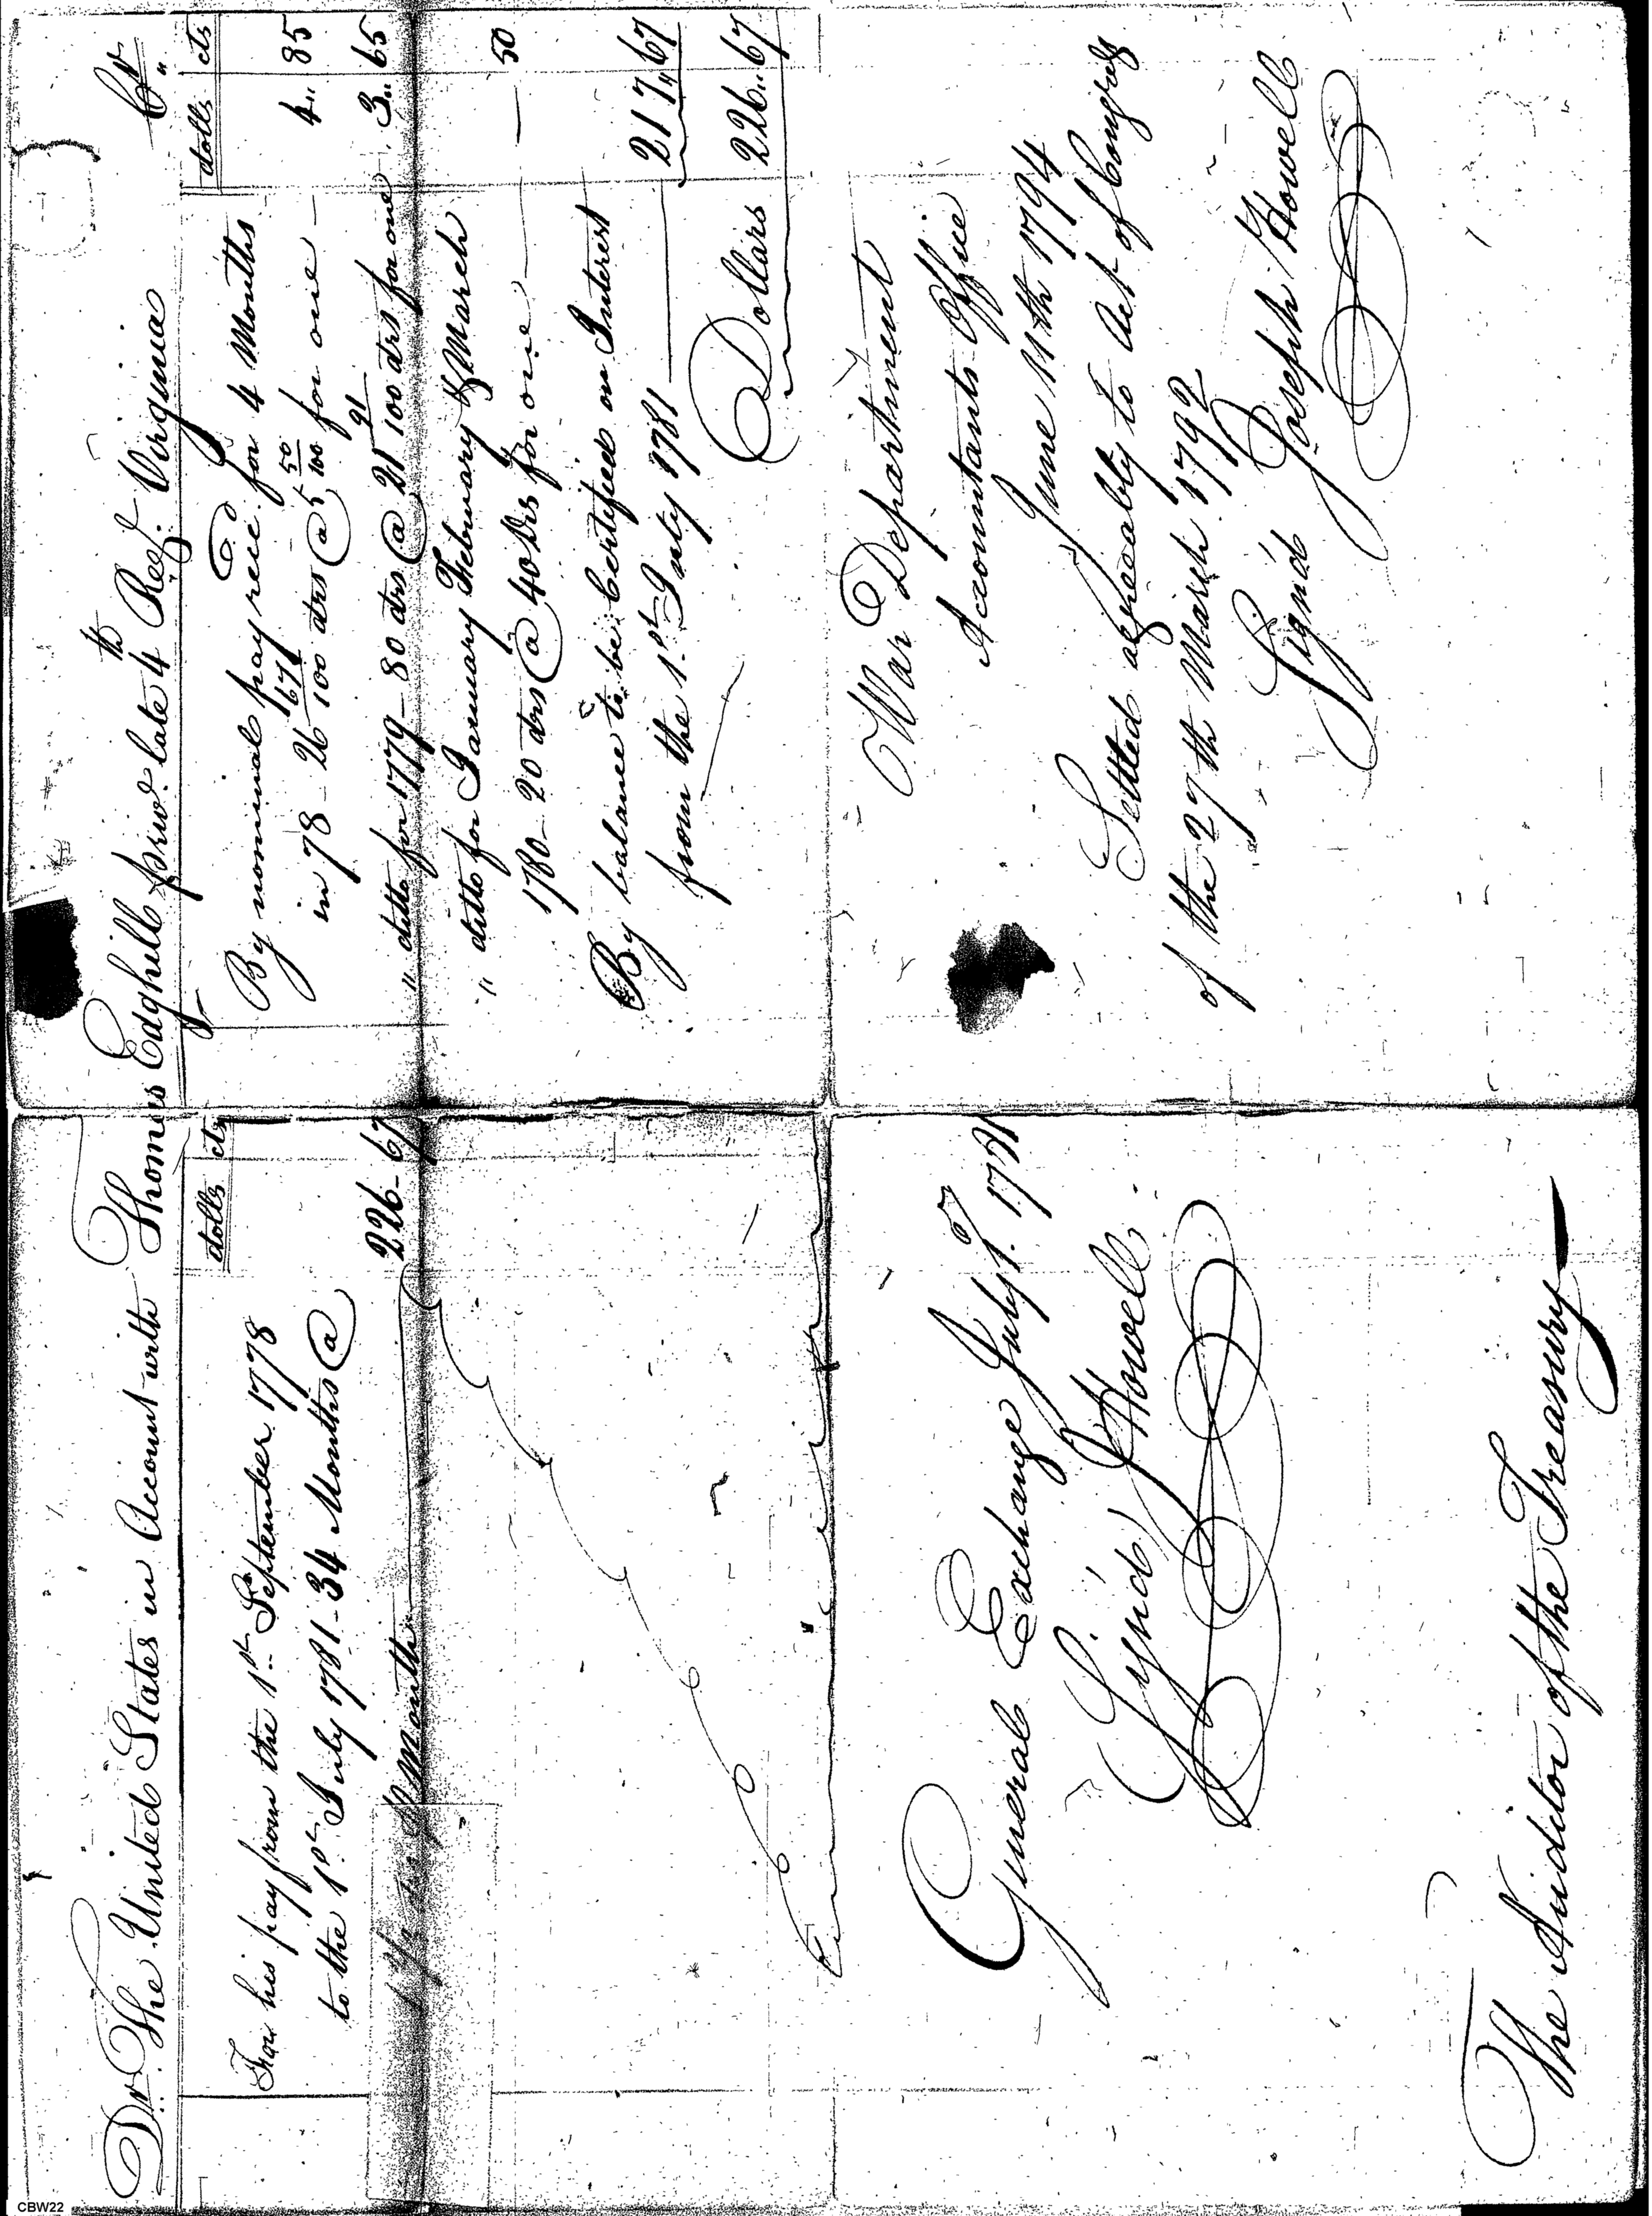 Dr. The United States in Account with Thomas Edghill priv.t late 4th Reg.t Virginia Cr.
dolls cts
For his pay from the 1st September 1778
to the 1st July 1781 - 34 Months @
month 226 - 67
dolls cts
By nominal pay rec.d for 4 Months
in 78 - 26 67/100 drs @ 5 50/100 for one - 4 " 85
" ditto for 1779 - 80 drs @ 21 91/100 drs for one 3 " 65
" ditto for January February & March
1780 - 20 drs @ 40 Drs for one - 50
By balance to be Certified on Interest
from the 1st July 1781 217 " 67
Dollars 226 " 67
General Exchange July 1781
Sign'd J Howell
The Auditor of the Treasury
War Department
Accountants Office
June 11th 1794
Settled agreeably to Act of Congress
of the 27th March 1792
Sign'd Joseph Howell
CBW22